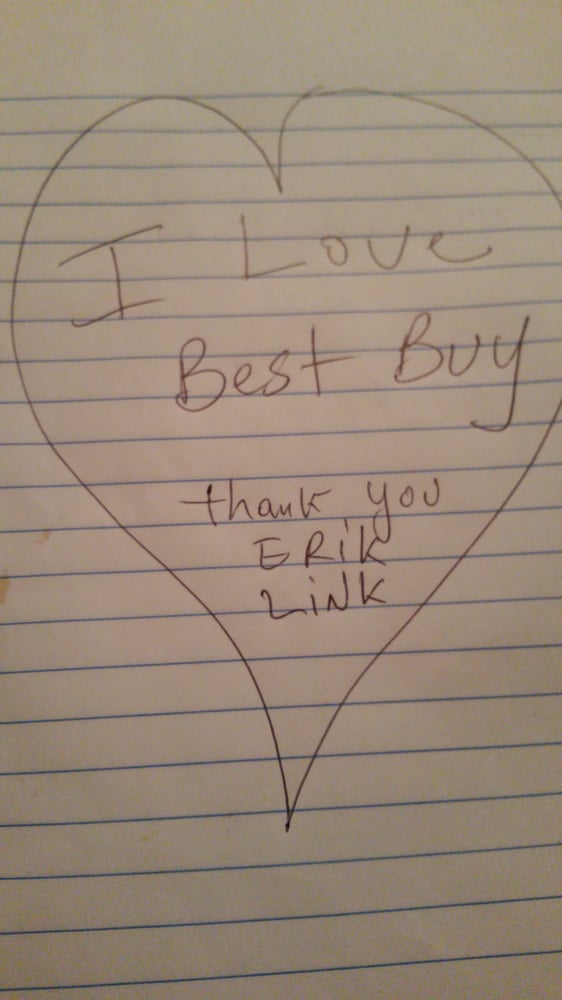 I Love
Best Buy
thank you
ERiK
LiNK